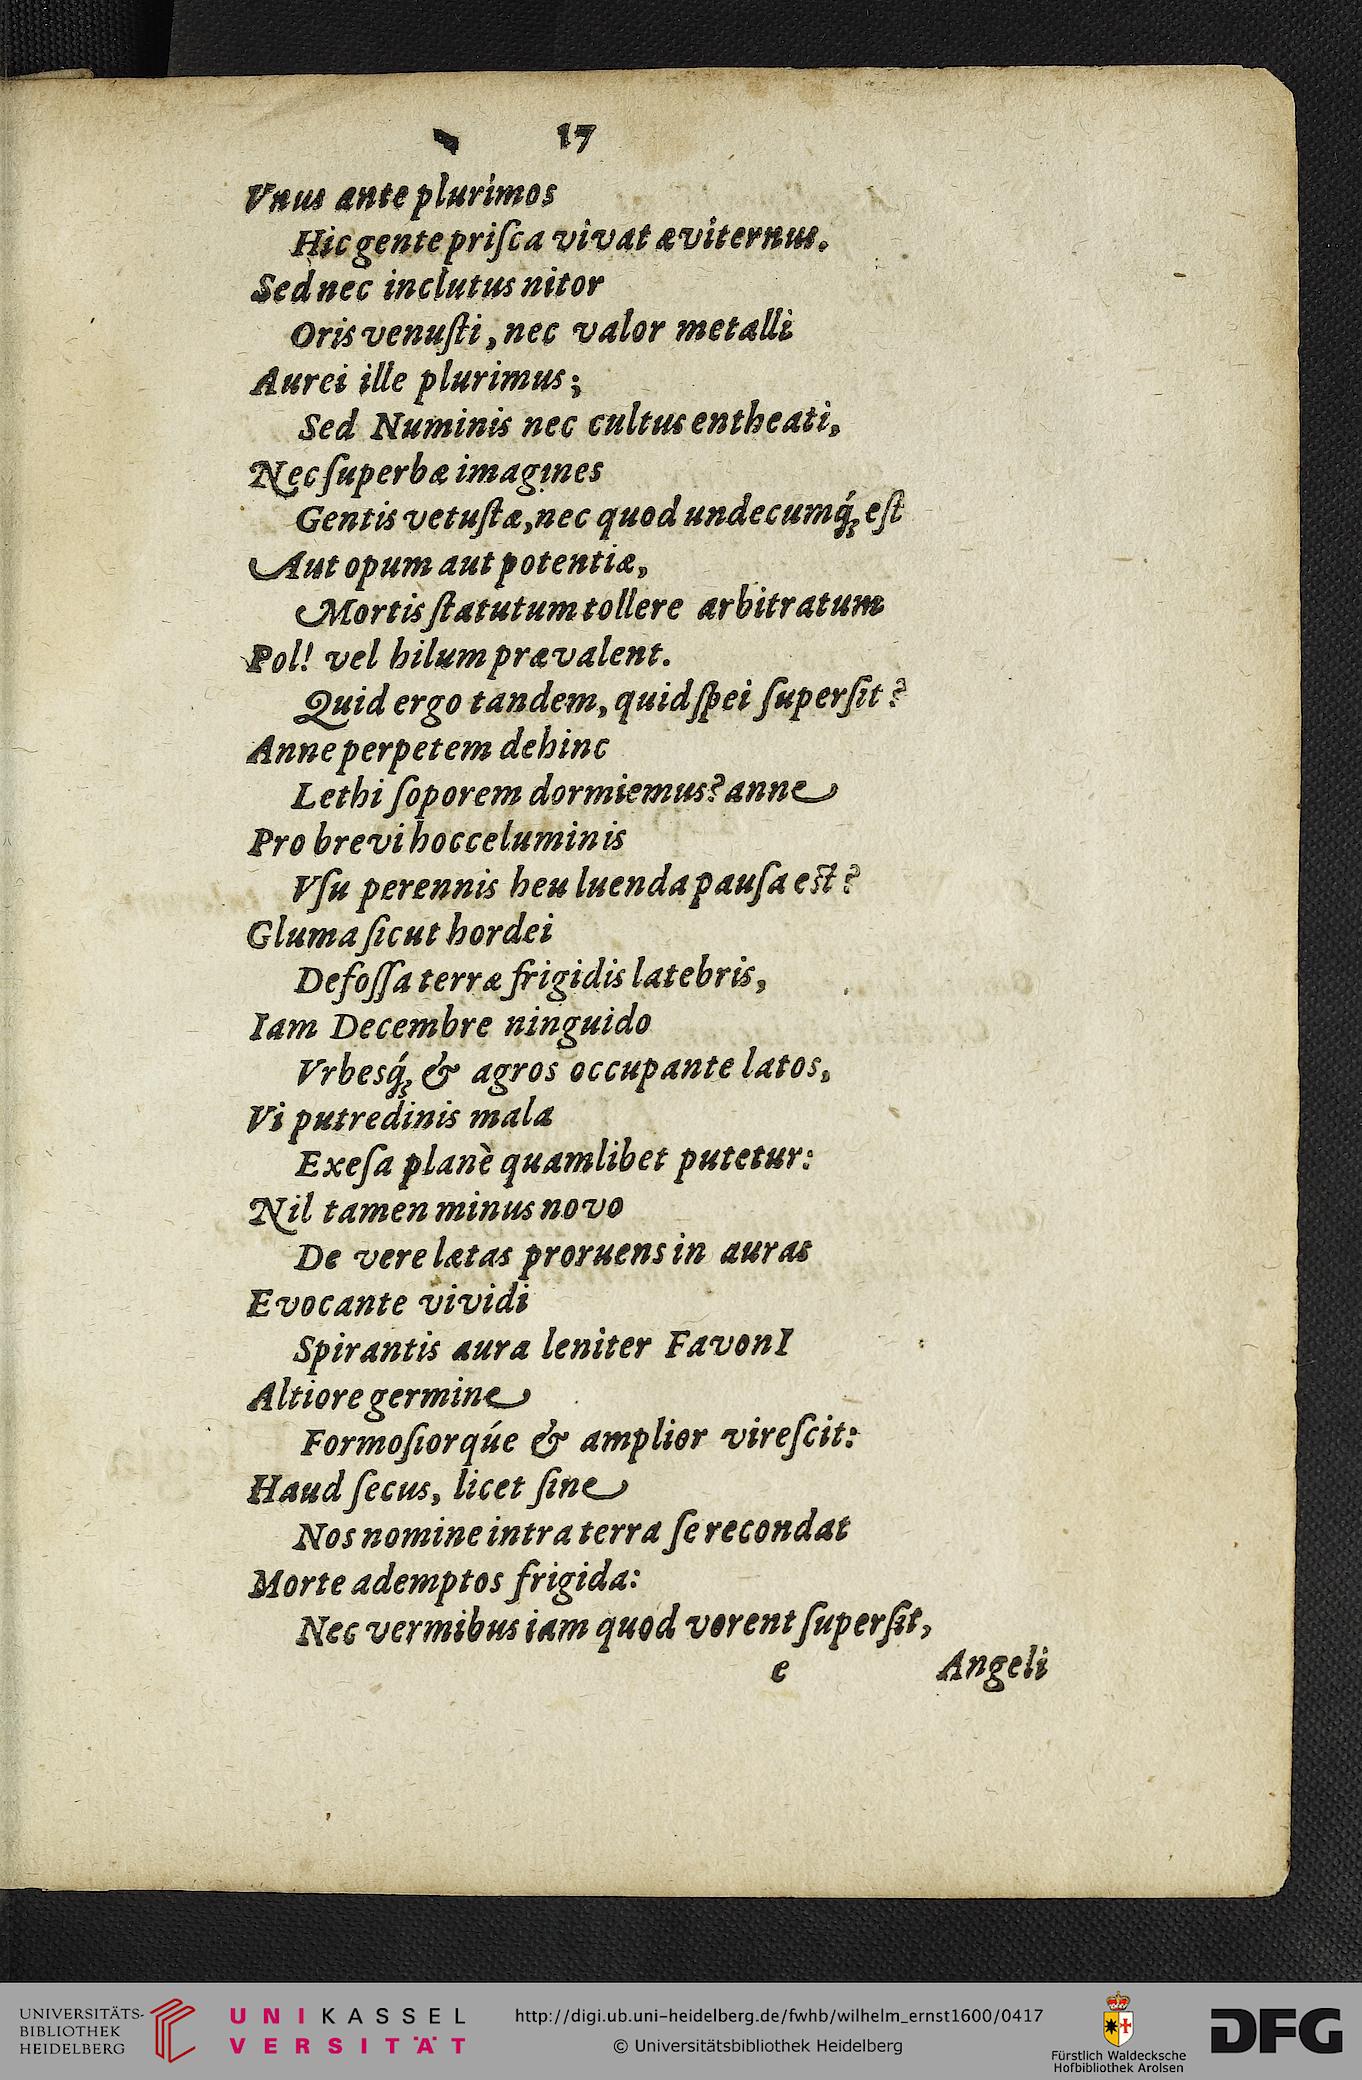 17
Vnus ante plurimos
Hic gente priſca vivat æviternus.
Sed nec inclutus nitor
Oris venuſti, nec valor metalli
Aurei ille plurimus;
Sed Numinis nec cultus entheati,
Nec ſuperbæ imagines
Gentis vetuſtæ, nec quod undecumq́; eſt
Aut opum aut potentiæ,
Mortis ſtatutum tollere arbitratum
Pol! vel hilum prævalent.
Quid ergo tandem, quid ſpei ſuperſit?
Anne perpetem dehinc
Lethi ſoporem dormiemus? anne
Pro brevi hocce luminis
Vſu perennis heu luenda pauſa eſt?
Gluma ſicut hordei
Defoſſa terræ frigidis latebris,
Iam Decembre ninguido
Vrbesq́; & agros occupante latos,
Vi putredinis mala
Exeſa planè quamlibet putetur:
Nil tamen minus novo
De vere lætas proruens in auras
Evocante vividi
Spirantis aura leniter FavonI
Altiore germine
Formoſiorqúe & amplior vireſcit:
Haud ſecus, licet ſine
Nos nomine intra terra ſe recondat
Morte ademptos frigida:
Nec vermibus iam quod vorent ſuperſit,
e Angeli
UNIVERSITÄTS-
BIBLIOTHEK
HEIDELBERG
UNIKASSEL
VERSITÄT
http://digi.ub.uni-heidelberg.de/fwhb/wilhelm_ernst1600/0417
© Universitätsbibliothek Heidelberg
Fürstlich Waldecksche
Hofbibliothek Arolsen
DFG